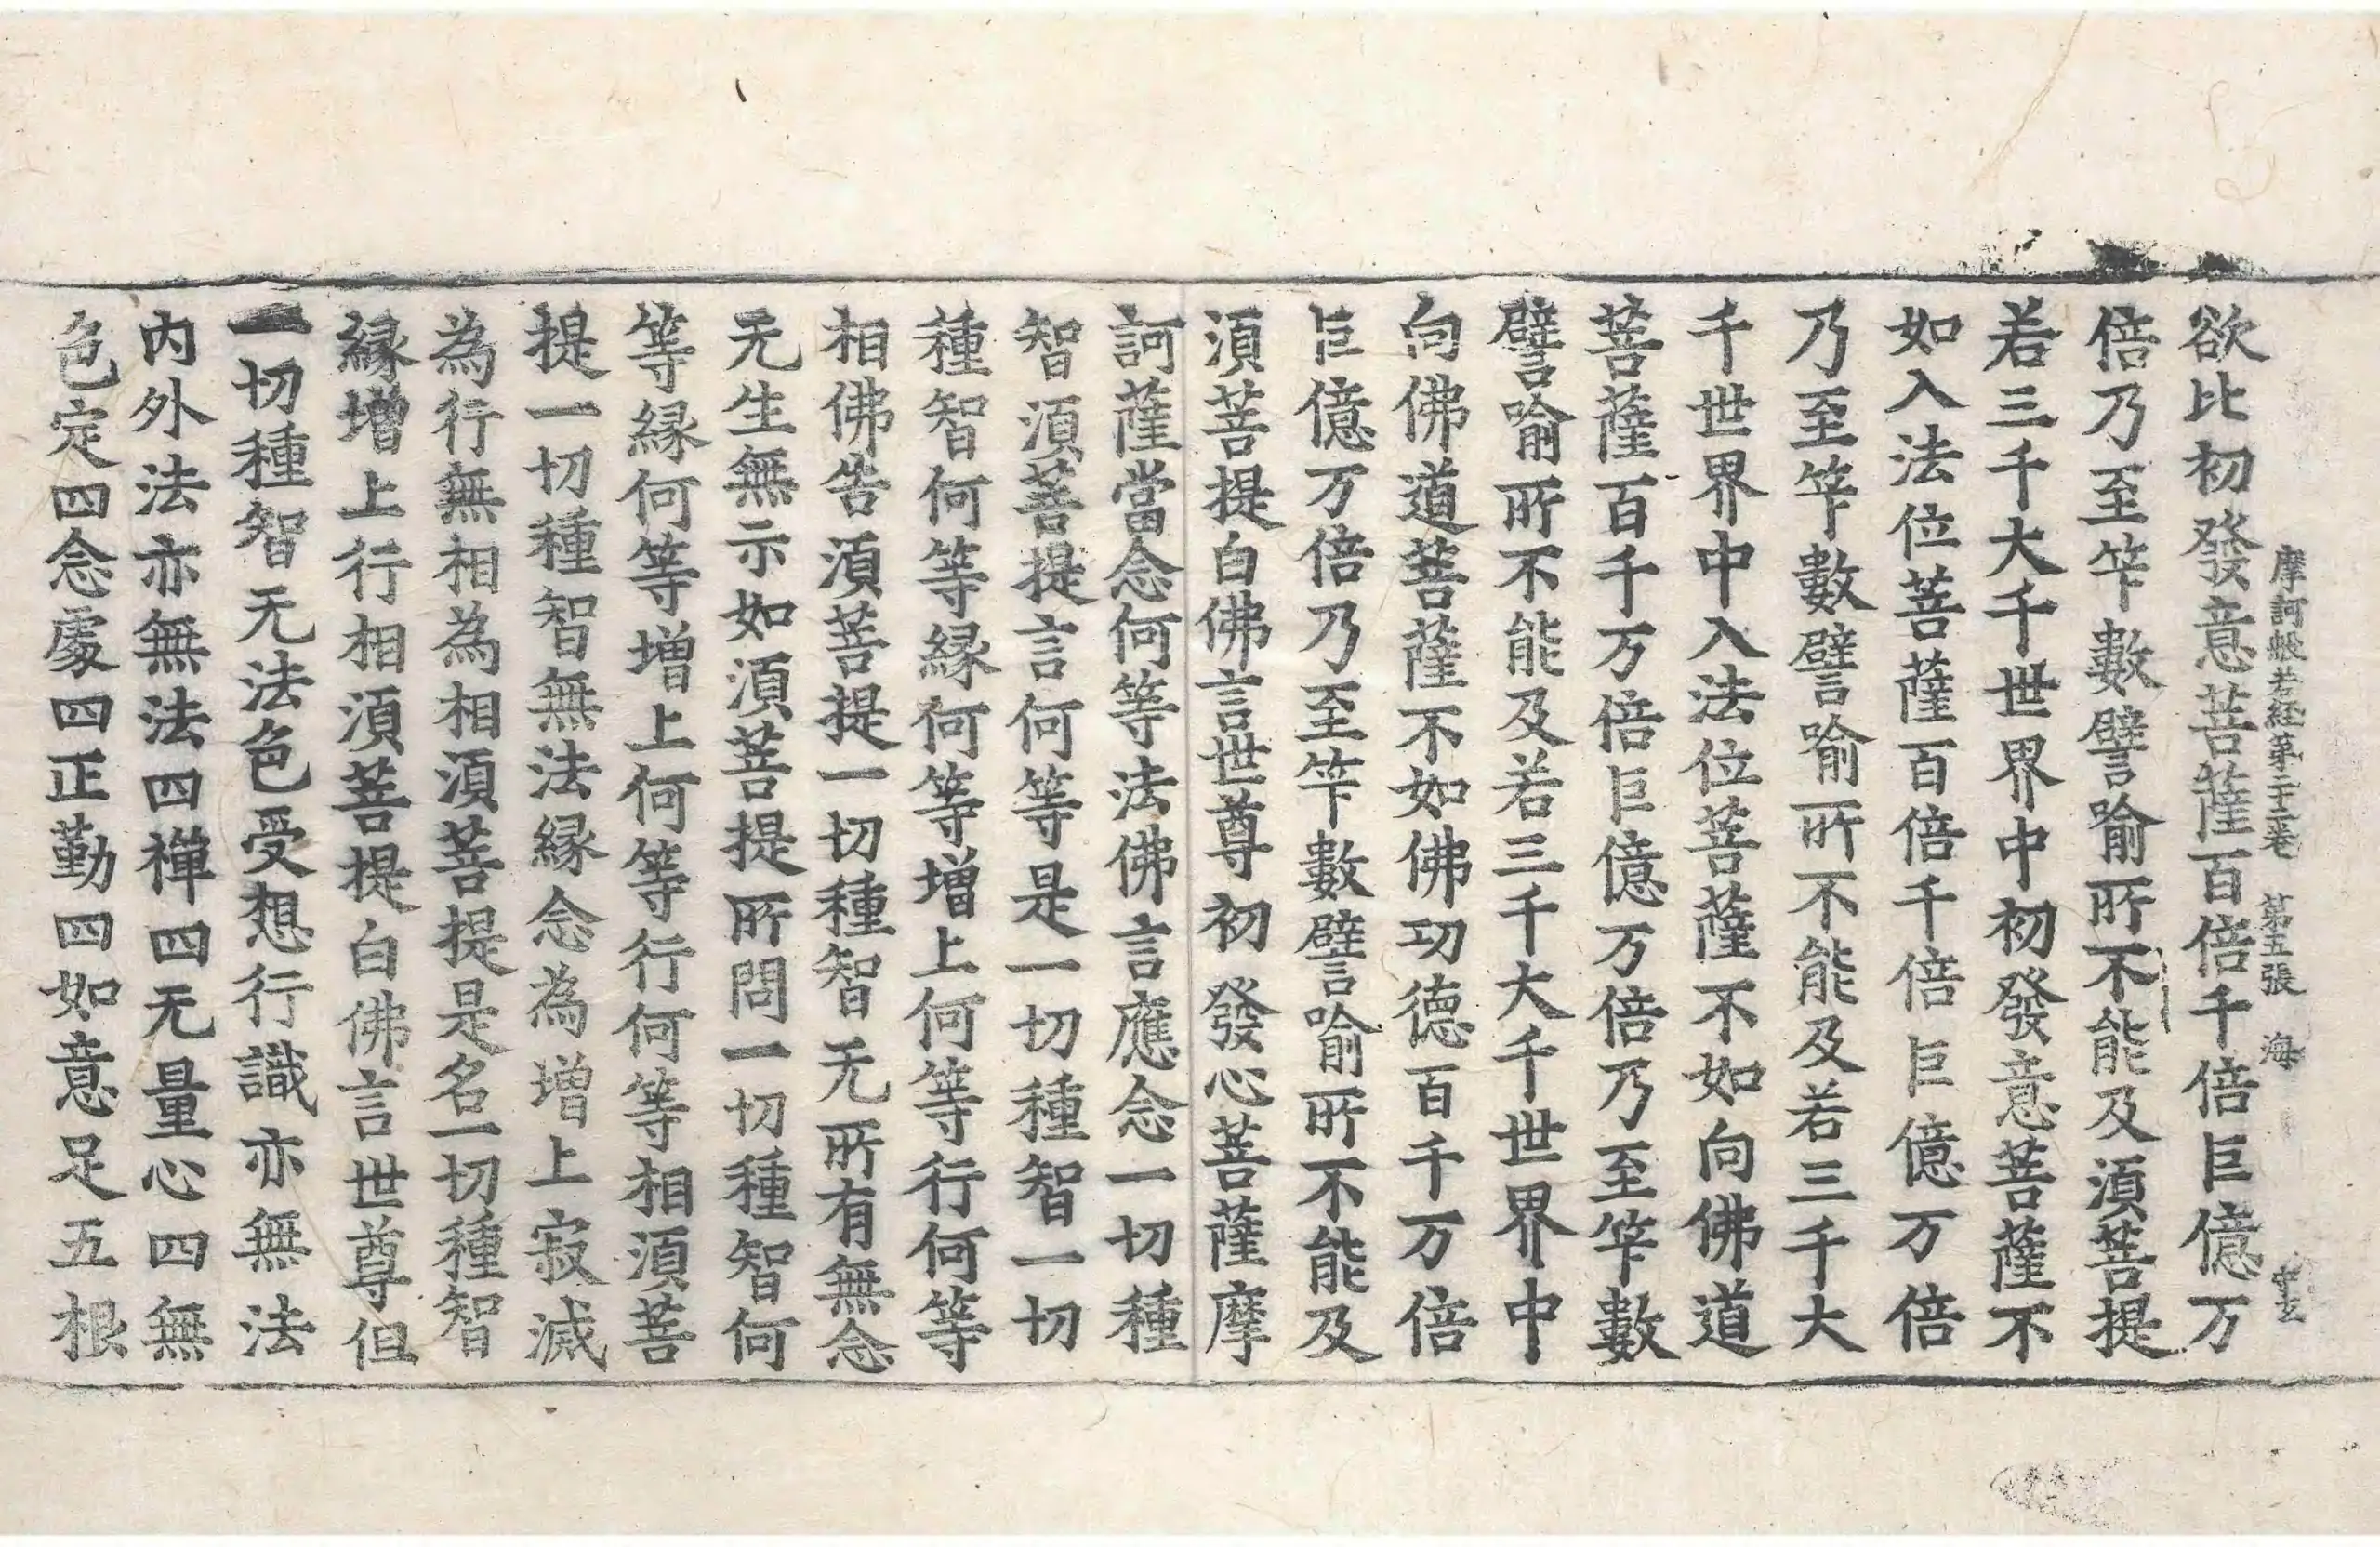 摩訶般若経第二十二巻 第五張 海
欲比初發意菩薩百倍千倍巨億万
倍乃至笇數譬喻所不能及湏菩提
若三千大千世界中初發意菩薩不
如入法位菩薩百倍千倍巨億万倍
乃至笇數譬喻所不能及若三千大
千世界中入法位菩薩不如向佛道
菩薩百千万倍巨億万倍乃至笇數
譬喻所不能及若三千大千世界中
向佛道菩薩不如佛功德百千万倍
巨億万倍乃至笇數譬喻所不能及
湏菩提白佛言世尊初發心菩薩摩
訶薩當念何等法佛言應念一切種
智湏菩提言何等是一切種智一切
種智何等縁何等增上何等行何等
相佛告湏菩提一切種智无所有無念
无生無示如湏菩提所問一切種智何
等縁何等增上何等行何等相湏菩
提一切種智無法縁念為增上寂滅
為行無相為相湏菩提是名一切種智
縁增上行相湏菩提白佛言世尊但
一切種智无法色受想行識亦無法
內外法亦無法四禪四无量心四無
色定四念處四正勤四如意足五根